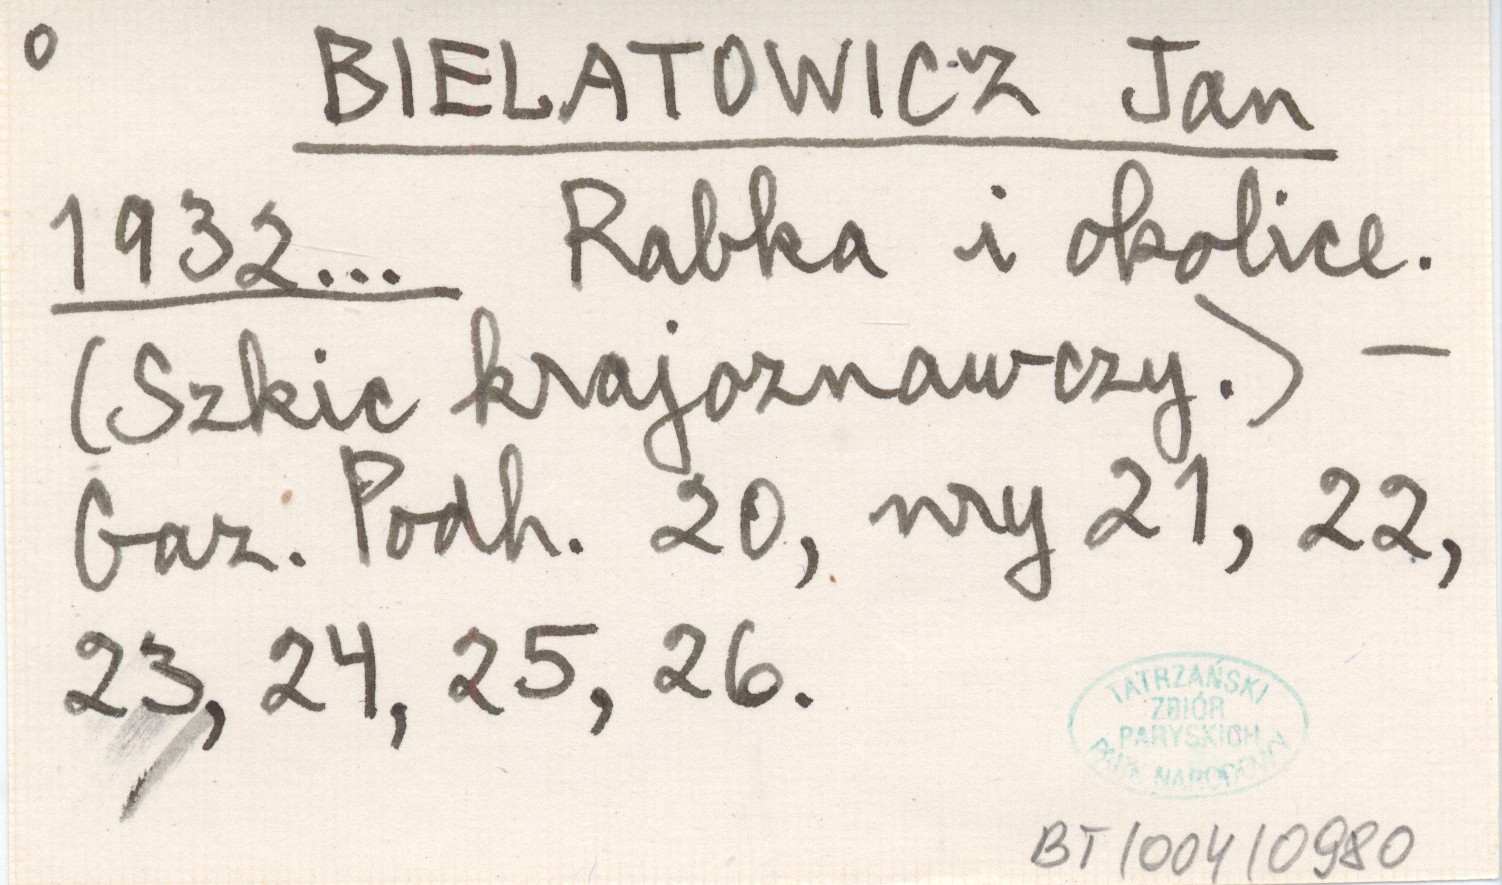 o
BIELATOWICZ Jan
1932... Rabka i okolice.
(Szkic krajoznawczy.) —
Gaz. Podh. 20, nry 21, 22,
23, 24, 25, 26.
TATRZAŃSKI
ZBIÓR
PARYSKICH
PARK NARODOWY
BT/004/0980